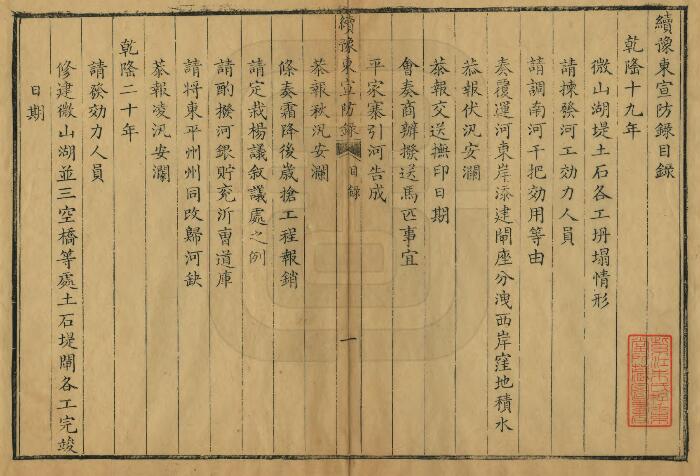 續豫東宣防錄目錄
乾隆十九年
微山湖堤土石各工坍塌情形
請揀發河工効力人員
請調南河千把効用等由
奏覆運河東岸添建閘座分洩西岸窪地積水
恭報伏汛安瀾
恭報交送撫印日期
會奏商辦撥送馬匹事宜
平家寨引河告成
續豫東宣防錄 目錄 一
恭報秋汛安瀾
條奏霜降後歲搶工程報銷
請定栽楊議敘議處之例
請酌撥河銀貯兗沂曹道庫
請將東平州州同改歸河缺
恭報凌汛安瀾
乾隆二十年
請發効力人員
修建微山湖並三空橋等處土石堤閘各工完竣
日期